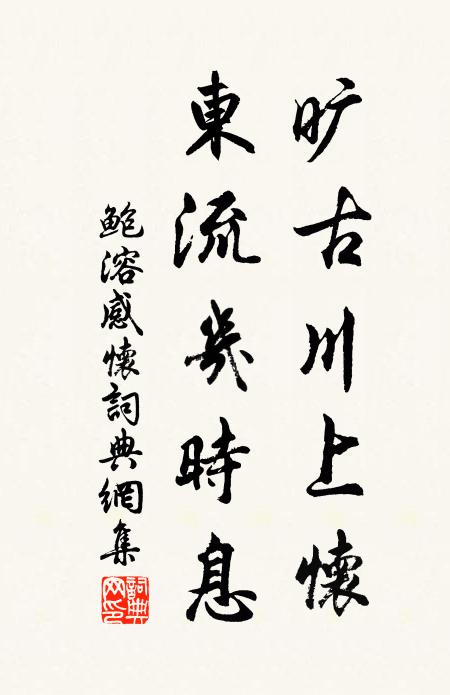 旷古川上懷
東流幾時息
鮑溶感懷詞典網集
詞典網印